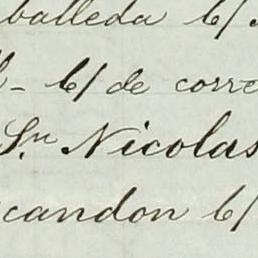 balleda 6/
- 6/ de corre
Sn Nicolas
candon 6/